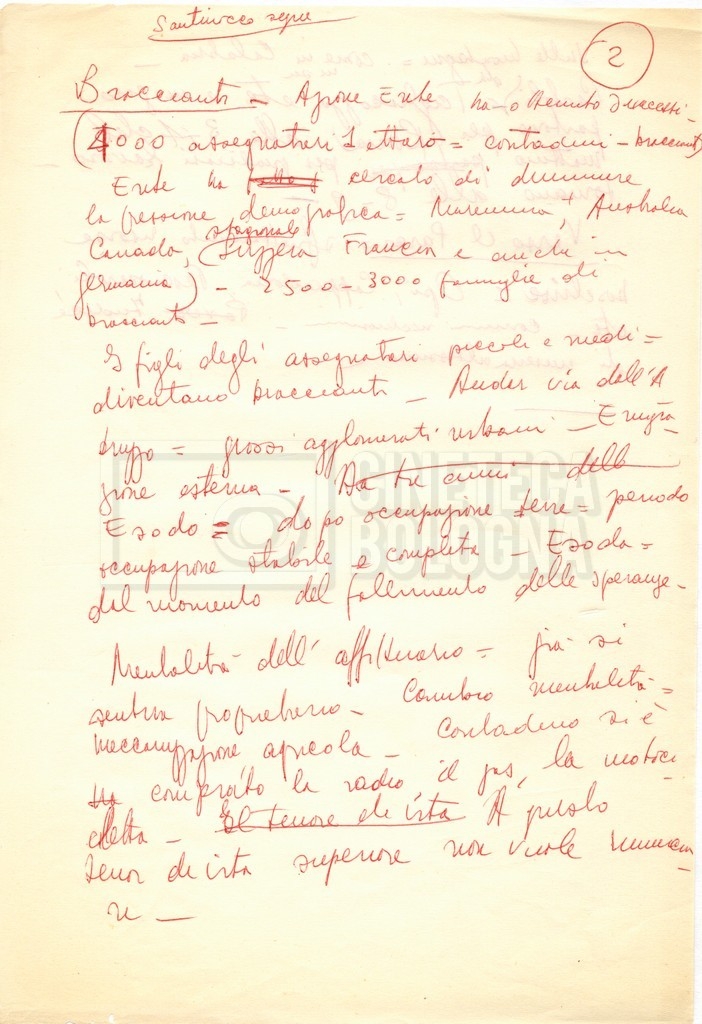 Santirocco segue
2
Braccianti - Azione Ente ha ottenuto
(4000 assegnatari 1 ettaro = contadini - braccianti)
Ente ha cercato di diminuire
la pressione demografica = Maremma, Australia
Canada, (stagionale Svizzera Francia e anche in
germania) - 2500 - 3000 famiglie di
braccianti -
I figli degli assegnatari piccoli e medi =
diventano braccianti - Andar via dall'A
bruzzo = grossi agglomerati urbani - Emigra
zione esterna - Da tre anni della
Esodo = dopo occupazione terre = periodo
occupazione stabile e completa - Esodo =
dal momento del fallimento delle speranze -
Mentalità dell'affittuario = già si
sentiva proprietario - Cambio mentalità =
meccanizzazione agricola - Contadino si è
comperato la radio, il gas, la motoci
cletta - El tenore di vita A questo
tenor di vita superiore non vuole rinuncia
re -
CINETECA
BOLOGNA